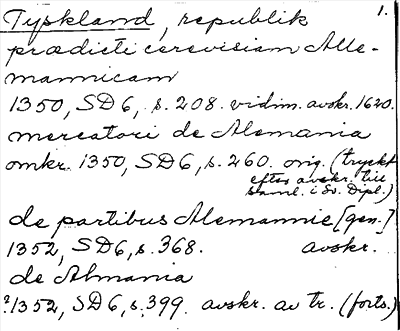 Tyskland, republik 1.
prædicti cerevisiam Alle-
mannicam
1350, SD6, s. 208. vidim. avskr. 1620.
mercatori de Alemania
omkr. 1350, SD6, s. 260. orig. (tryckt
efter avskr. till
saml. i Sv. Dipl.)
de partibus Alemannie [gen.]
1352, SD6, s. 368. avskr.
de Almania
?1352, SD6, s. 399. avskr. av tr. (forts.)